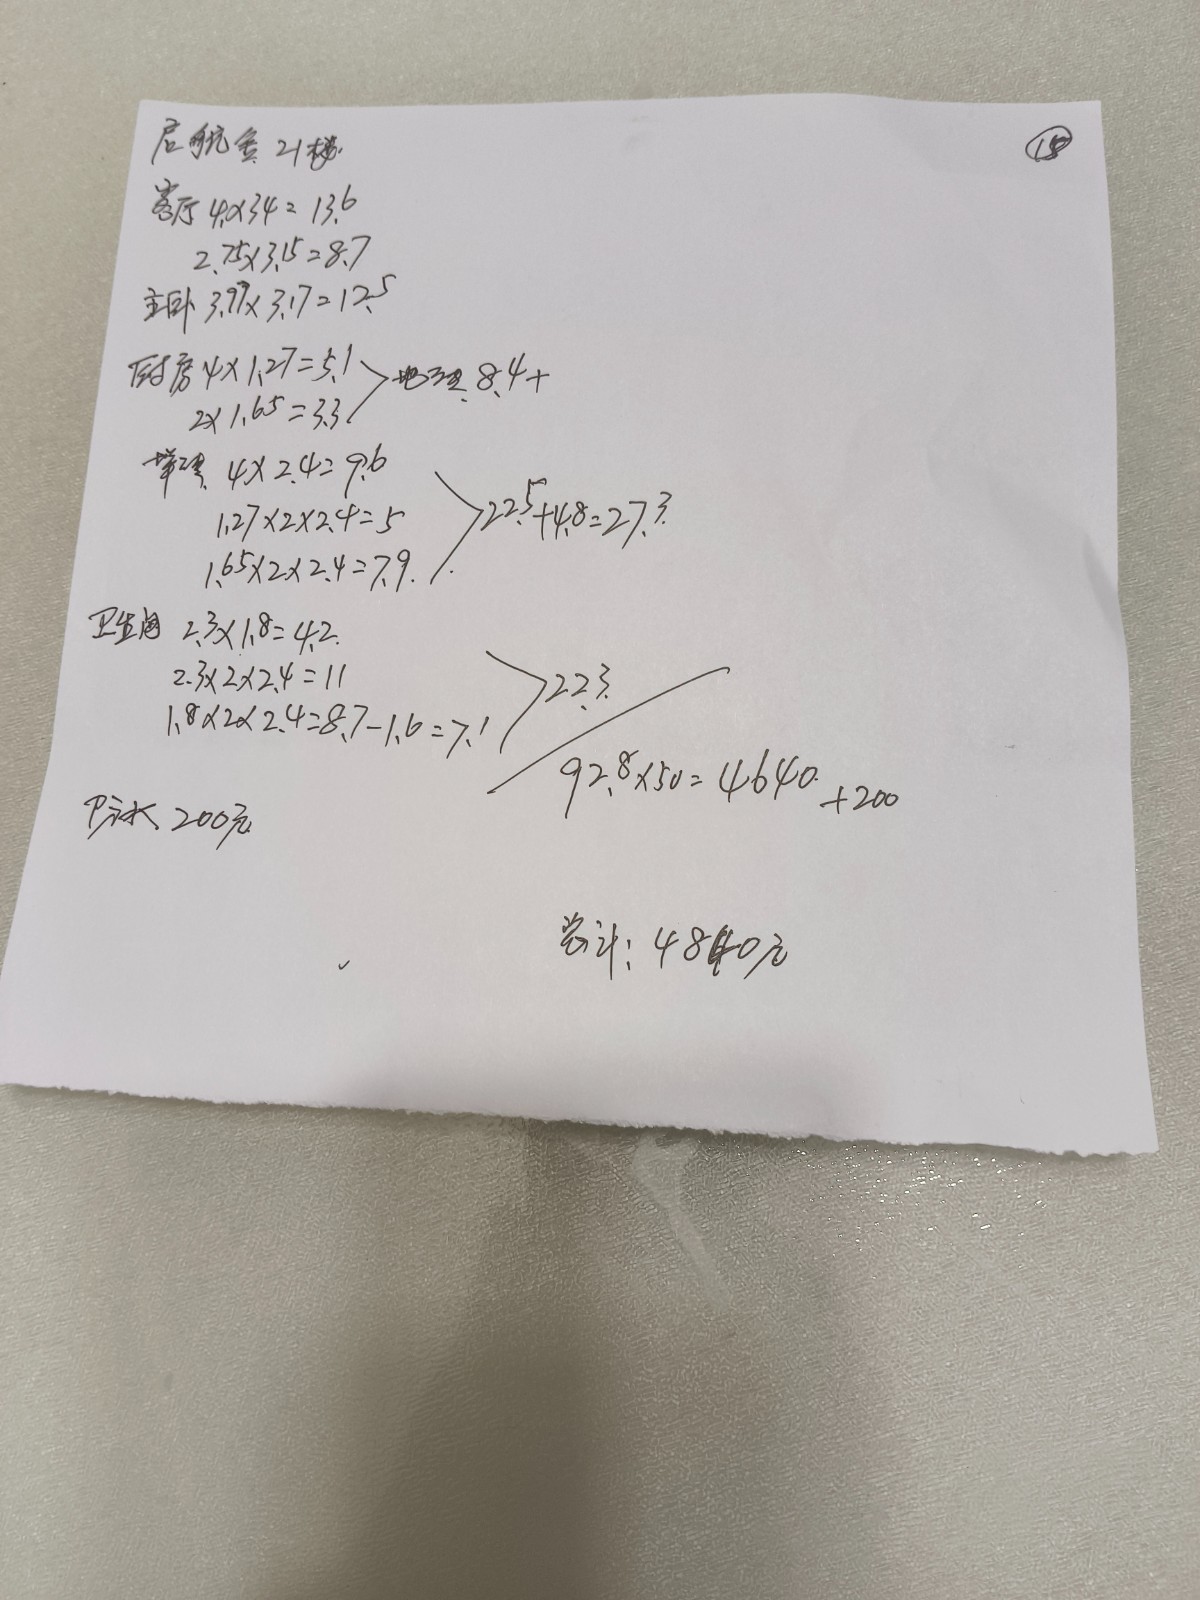 启航舍 21楼
⑮
客厅 4×3.4=13.6
2.75×3.15=8.7
主卧 3.97×3.17=12.5
厨房 4×1.27=5.1
地砖 8.4+
2×1.65=3.3
墙砖 4×2.4=9.6
1.27×2×2.4=5
22.5+4.8=27.3
1.65×2×2.4=7.9
卫生间 2.3×1.8=4.2
2.3×2×2.4=11
22.3
1.8×2×2.4=8.7-1.6=7.1
92.8×50=4640+200
防水 200元
总计：4840元